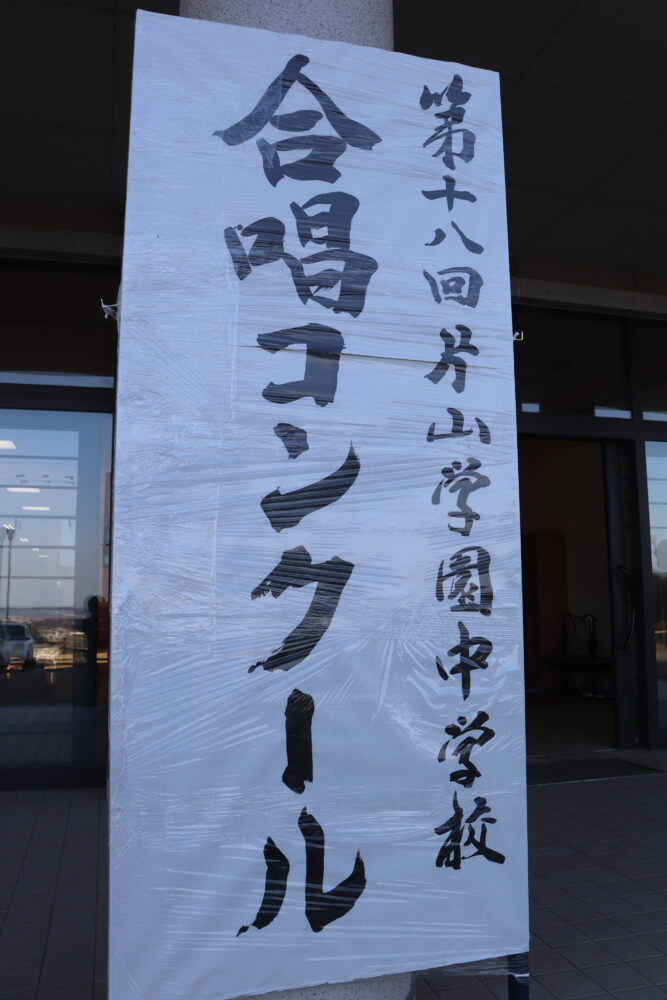 第十八回片山学園中学校
合唱コンクール